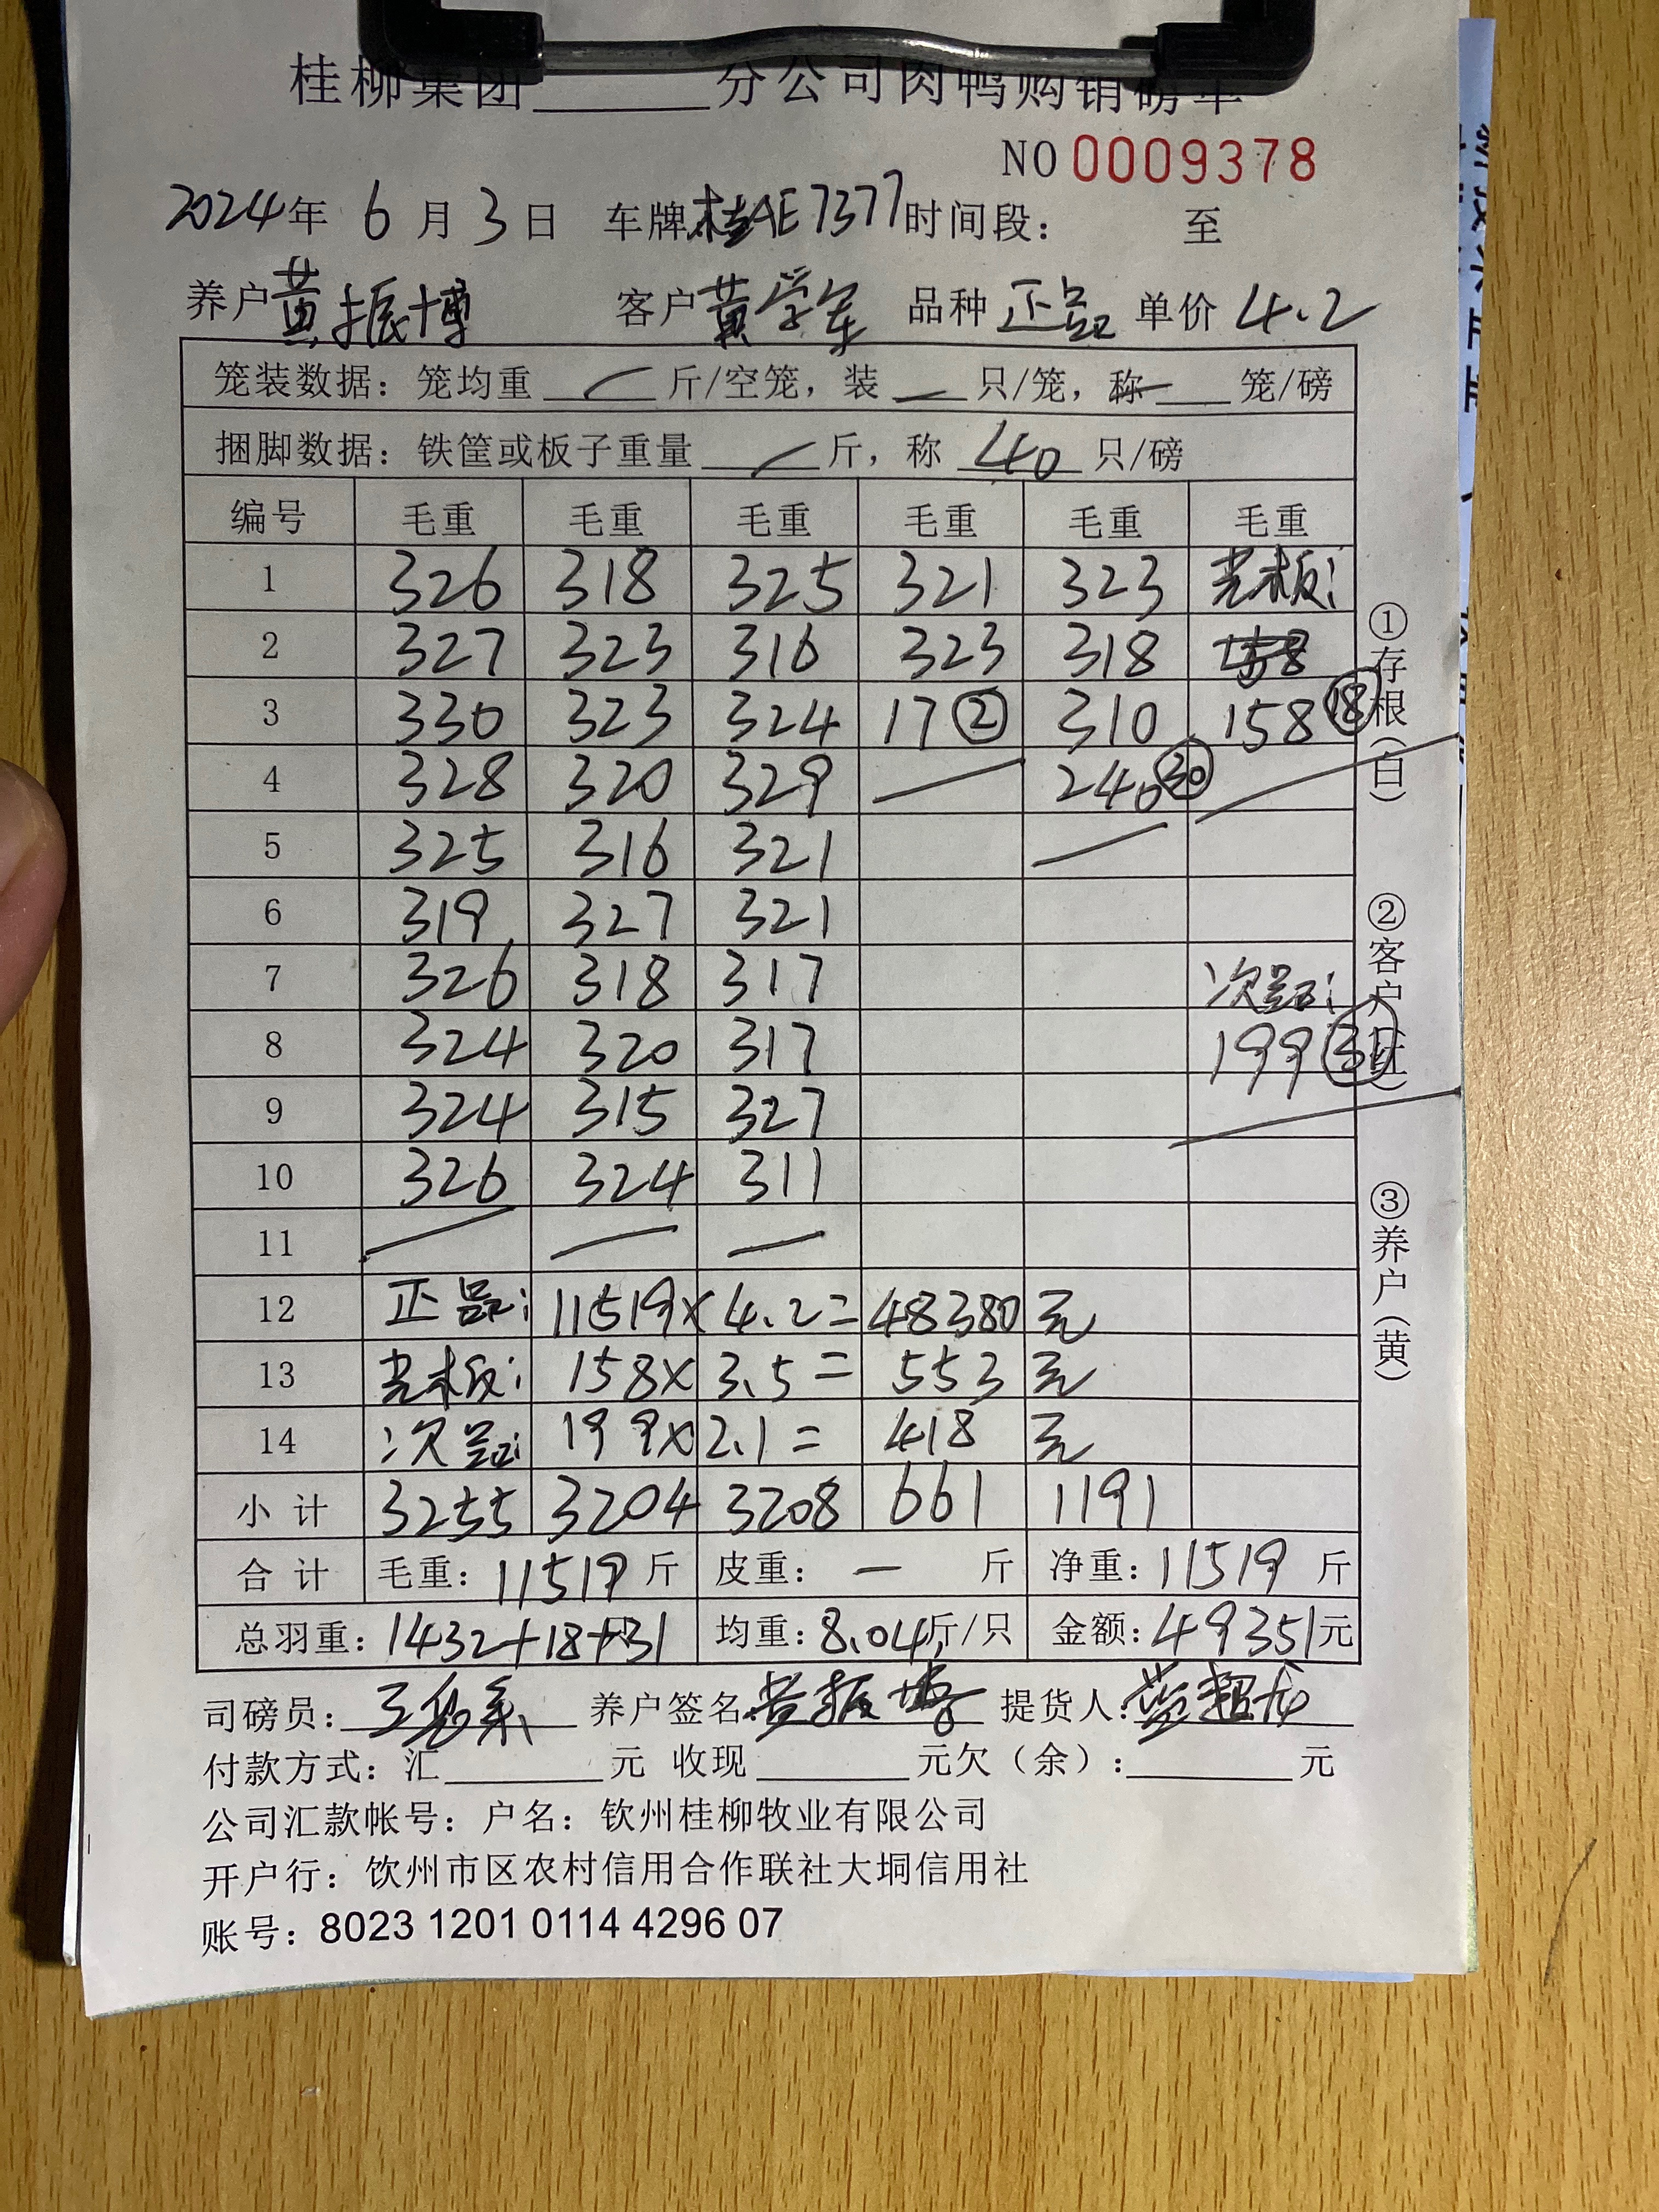 桂柳集团______分公司肉鸭购销磅单
NO 0009378
2024年 6 月 3 日 车牌 桂AE7377 时间段： 至
养户 黄振博 客户 黄学军 品种 正品 单价 4.2
笼装数据：笼均重 — 斤/空笼，装 — 只/笼，称 — 笼/磅
捆脚数据：铁筐或板子重量 — 斤，称 40 只/磅
编号 毛重 毛重 毛重 毛重 毛重 毛重
1 326 318 325 321 323 光板:
2 327 323 316 323 318 158
3 330 323 324 17② 310 158⑱
4 328 320 329 — 240㉚
5 325 316 321 —
6 319 327 321
7 326 318 317 次品:
8 324 320 317 199㉛
9 324 315 327
10 326 324 311
11 — — —
12 正品: 11519× 4.2= 48380 元
13 光板: 158× 3.5= 553 元
14 次品: 199× 2.1= 418 元
小计 3255 3204 3208 661 1191
合计 毛重：11519 斤 皮重：— 斤 净重：11519 斤
总羽重：1432+18+31 均重：8.04斤/只 金额：49351元
司磅员： 养户签名：黄振博 提货人：
付款方式：汇______元 收现______元欠（余）：______元
公司汇款帐号：户名：钦州桂柳牧业有限公司
开户行：饮州市区农村信用合作联社大垌信用社
账号：8023 1201 0114 4296 07
①存根（白） ②客户（红） ③养户（黄）